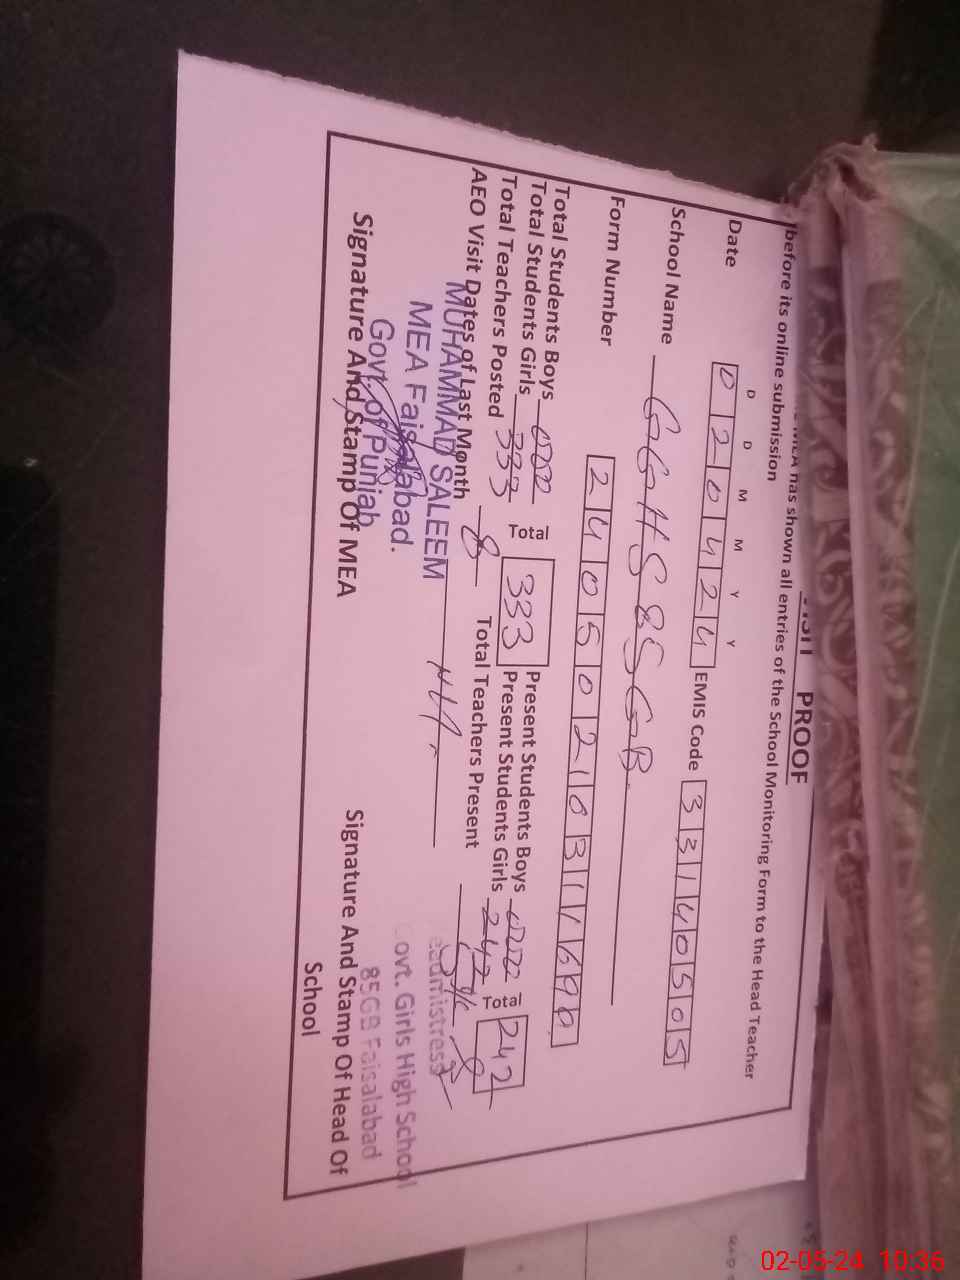 VISIT PROOF
MEA has shown all entries of the School Monitoring Form to the Head Teacher
before its online submission
D D M M Y Y
Date 020424 EMIS Code 33140505
School Name GGHS 85 GB.
Form Number
Total Students Boys Total Present Students Boys Total
Total Students Girls 333 333 Present Students Girls 242 242
Total Teachers Posted 8 Total Teachers Present 8
AEO Visit Dates of Last Month
MUHAMMAD SALEEM
MEA Faisalabad.
Govt. of Punjab
Signature And Stamp Of MEA
Govt. Girls High School
85GB Faisalabad
Signature And Stamp Of Head Of
School
02-05-24 10:36